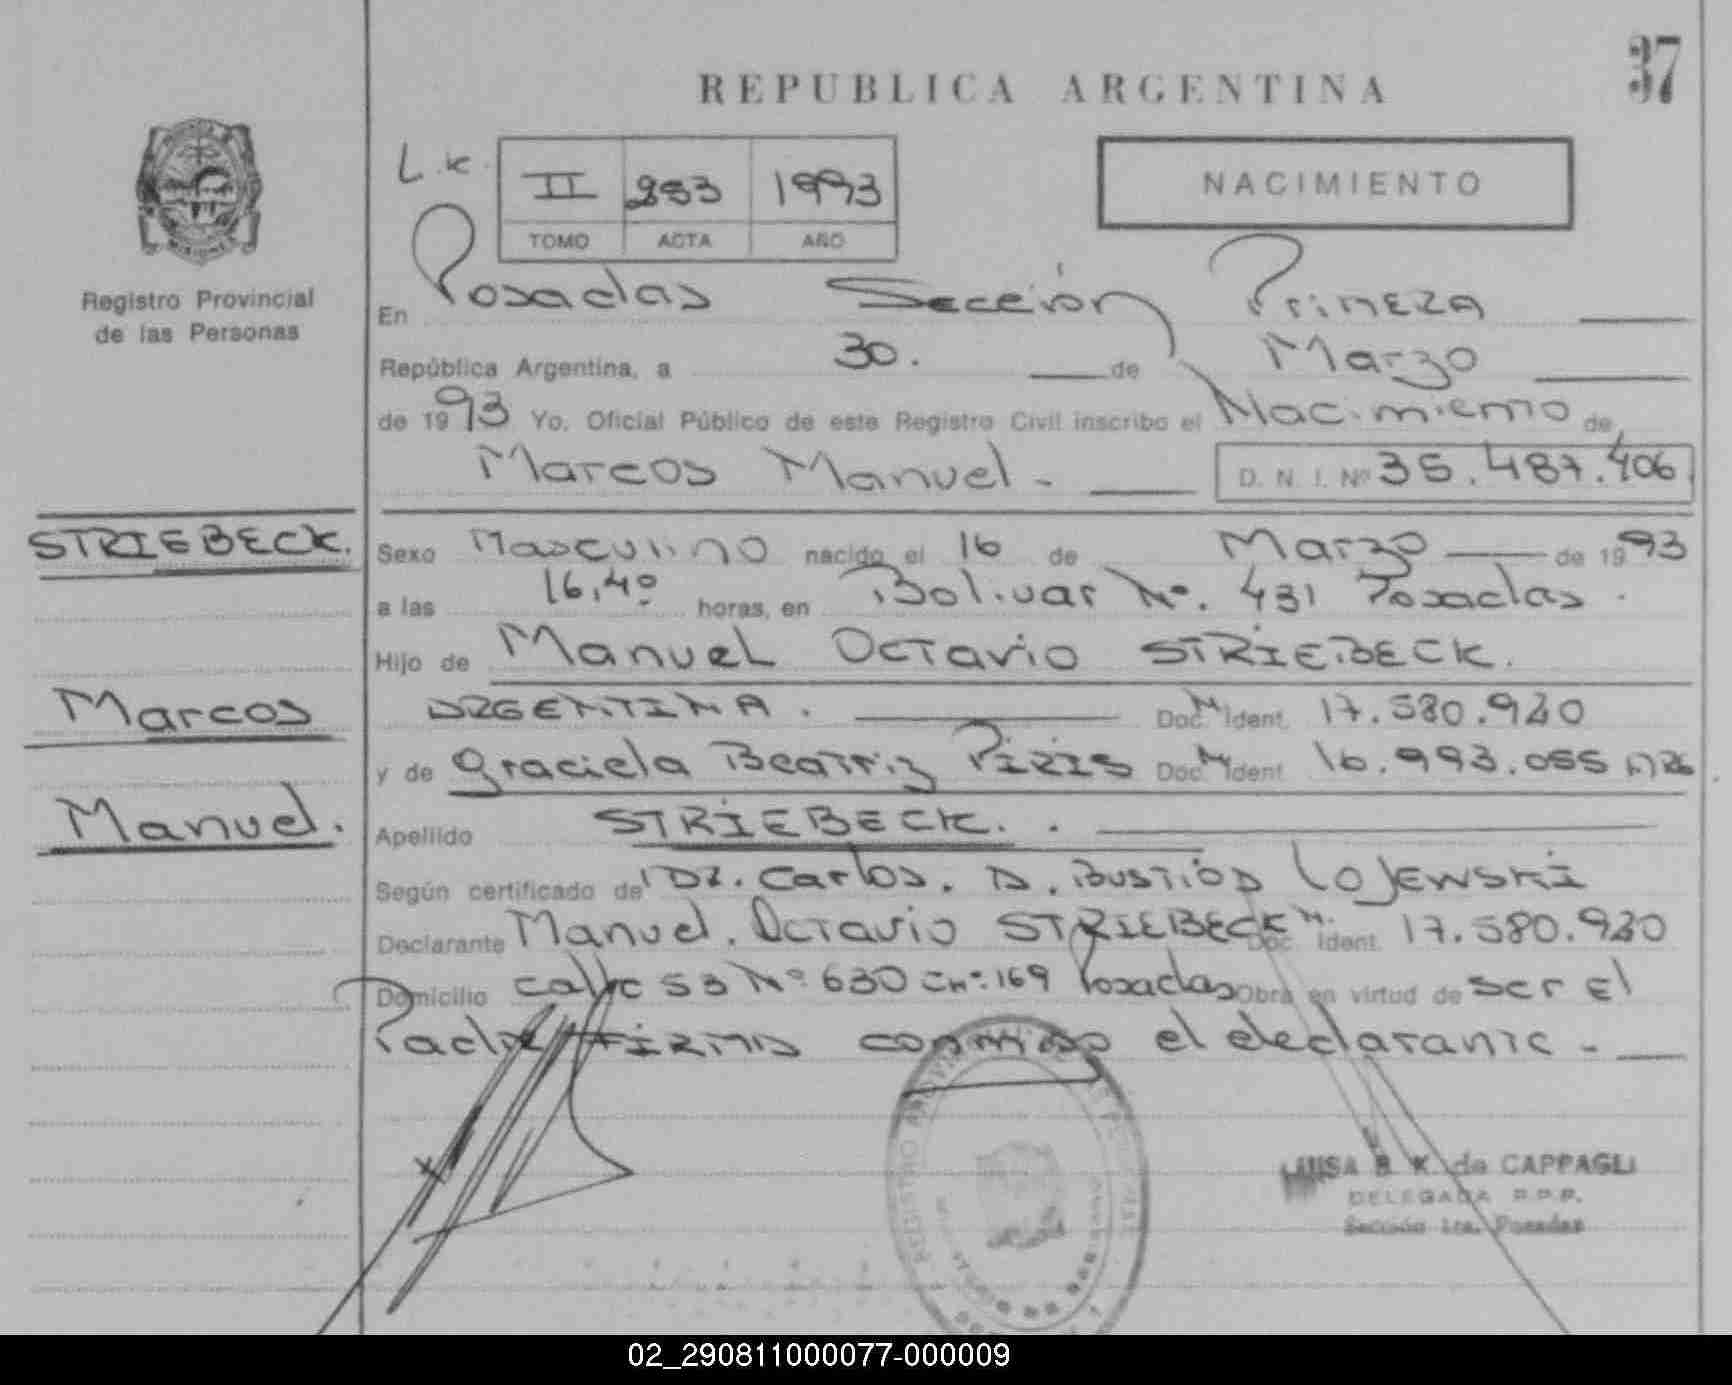 37
REPUBLICA ARGENTINA
NACIMIENTO
II 253 1993
TOMO ACTA AÑO
Registro Provincial
de las Personas
En Posadas Sección Primera
República Argentina, a 30. de Marzo
de 1993 Yo, Oficial Público de este Registro Civil inscribo el Nacimiento de
Marcos Manuel. - D. N. I. Nº 35.487.406
STRIEBECK.
Sexo Masculino nacido el 16 de Marzo de 1993
a las 16,40 horas, en Bolivar Nº. 431 Posadas.
Hijo de Manuel Octavio STRIEBECK.
Marcos
ARGENTINA. Doc. Ident. 17.580.920
y de Graciela Beatriz Piris Doc. Ident 16.993.055
Manuel.
Apellido STRIEBECK.
Según certificado de Dr. Carlos. A. Lojewski
Declarante Manuel. Octavio STRIEBECK Doc. Ident. 17.580.920
Domicilio calle 53 Nº 630 CH:169 Posadas Obra en virtud de ser El
Padre FIRMA conmigo el declarante -
LUISA B. K. de CAPPAGLI
DELEGADA R.P.P.
Sección 1ra. Posadas
02_290811000077-000009